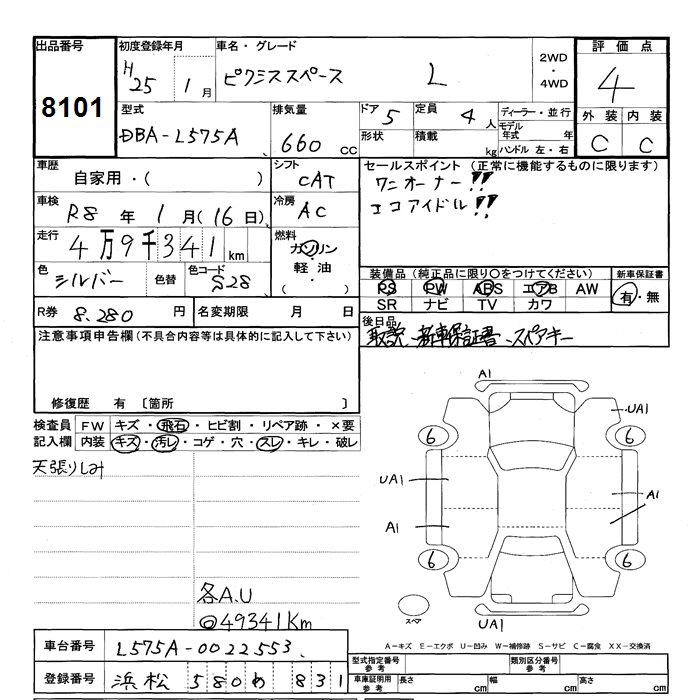 出品番号 初度登録年月 車名・グレード 2WD・4WD 評価点
8101 H25 1月 ピクシススペース L 4
型式 排気量 ドア 5 定員 4人 ディーラー・並行 外装 内装
DBA-L575A 660 CC 形状 積載 kg モデル年式 年 ハンドル 左・右 C C
車歴 自家用・( ) シフト CAT セールスポイント (正常に機能するものに限ります)
ワンオーナー!!
車検 R8年 1月(16日) 冷房 AC エコアイドル!!
走行 4万9千341km 燃料 ガソリン・軽油・( )
色 シルバー 色替 色コード S28 装備品(純正品に限り○をつけてください) 新車保証書
PS PW ABS エアB AW 有・無
SR ナビ TV カワ
R券 8.280円 名変期限 月 日 後日品
取説・新車保証書・スペアキー
注意事項申告欄(不具合内容等は具体的に記入して下さい)
修復歴 有 〔箇所 〕
検査員 FW キズ・飛石・ヒビ割・リペア跡・×要
記入欄 内装 キズ・汚レ・コゲ・穴・スレ・キレ・破レ
天張りしみ
A1
UA1
6 6
UA1 A1
A1
6 6
各A.U
◎49341Km
スペア UA1
A-キズ E-エクボ U-凹み W-補修跡 S-サビ C-腐食 XX-交換済
車台番号 L575A-0022553
型式指定番号 参考 類別区分番号 参考
登録番号 浜松 580 め 831
車庫証明用 参考 長さ cm 幅 cm 高さ cm